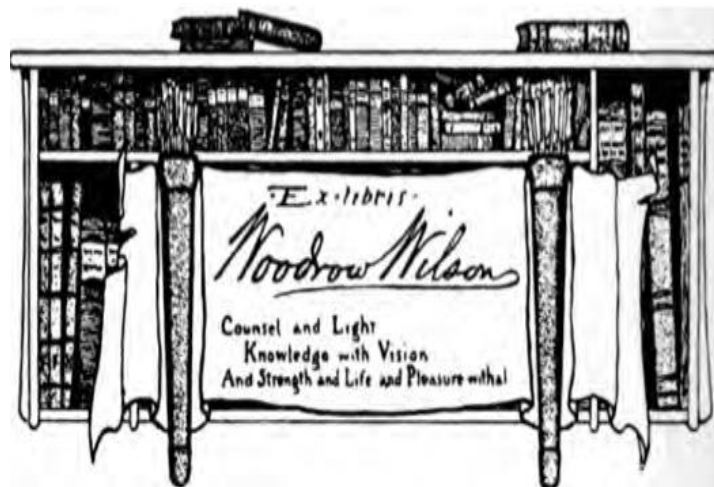 ·Ex·libris·
Woodrow Wilson
Counsel and Light
Knowledge with Vision
And Strength and Life and Pleasure withal